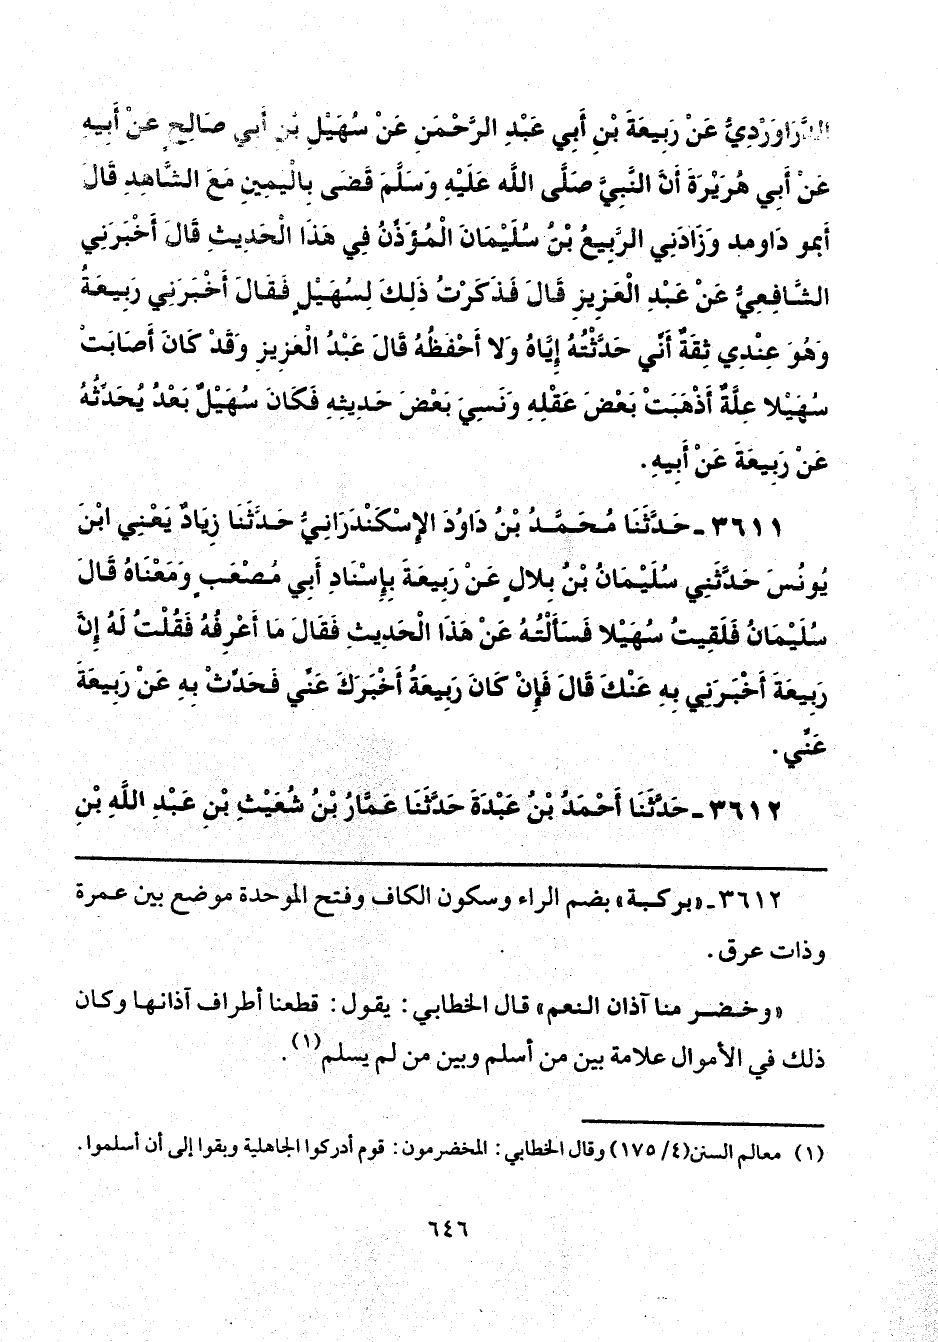 الدَّرَاوَرْدِيُّ عَنْ رَبِيعَةَ بْنِ أَبِي عَبْدِ الرَّحْمَنِ عَنْ سُهَيْلِ بْنِ أَبِي صَالِحٍ عَنْ أَبِيهِ
عَنْ أَبِي هُرَيْرَةَ أَنَّ النَّبِيَّ صَلَّى اللَّه عَلَيْهِ وَسَلَّمَ قَضَى بِالْيَمِينِ مَعَ الشَّاهِدِ قَالَ
أَبمو دَاومد وَزَادَنِي الرَّبِيعُ بْنُ سُلَيْمَانَ الْمُؤَذِّنُ فِي هَذَا الْحَدِيثِ قَالَ أَخْبَرَنِي
الشَّافِعِيُّ عَنْ عَبْدِ الْعَزِيزِ قَالَ فَذَكَرْتُ ذَلِكَ لِسُهَيْلٍ فَقَالَ أَخْبَرَنِي رَبِيعَةُ
وَهُوَ عِنْدِي ثِقَةٌ أَنِّي حَدَّثْتُهُ إِيَّاهُ وَلا أَحْفَظُهُ قَالَ عَبْدُ الْعَزِيزِ وَقَدْ كَانَ أَصَابَتْ
سُهَيْلا عِلَّةٌ أَذْهَبَتْ بَعْضَ عَقْلِهِ وَنَسِيَ بَعْضَ حَدِيثِهِ فَكَانَ سُهَيْلٌ بَعْدُ يُحَدِّثُهُ
عَنْ رَبِيعَةَ عَنْ أَبِيهِ.
٣٦١١ـ حَدَّثَنَا مُحَمَّدُ بْنُ دَاوُدَ الإِسْكَنْدَرَانِيُّ حَدَّثَنَا زِيَادٌ يَعْنِي ابْنَ
يُونُسَ حَدَّثَنِي سُلَيْمَانُ بْنُ بِلالٍ عَنْ رَبِيعَةَ بِإِسْنَادِ أَبِي مُصْعَبٍ وَمَعْنَاهُ قَالَ
سُلَيْمَانُ فَلَقِيتُ سُهَيْلا فَسَأَلْتُهُ عَنْ هَذَا الْحَدِيثِ فَقَالَ مَا أَعْرِفُهُ فَقُلْتُ لَهُ إِنَّ
رَبِيعَةَ أَخْبَرَنِي بِهِ عَنْكَ قَالَ فَإِنْ كَانَ رَبِيعَةُ أَخْبَرَكَ عَنِّي فَحَدِّثْ بِهِ عَنْ رَبِيعَةَ
عَنِّي.
٣٦١٢ـ حَدَّثَنَا أَحْمَدُ بْنُ عَبْدَةَ حَدَّثَنَا عَمَّارُ بْنُ شُعَيْثِ بْنِ عَبْدِ اللَّهِ بْنِ
٣٦١٢ـ «بركبة» بضم الراء وسكون الكاف وفتح الموحدة موضع بين عمرة
وذات عرق.
«وخضر منا آذان النعم» قال الخطابي: يقول: قطعنا أطراف آذانها وكان
ذلك في الأموال علامة بين من أسلم وبين من لم يسلم(١).
(١) معالم السنن(٤/ ١٧٥) وقال الخطابي: المخضرمون: قوم أدركوا الجاهلية وبقوا إلى أن أسلموا.
٦٤٦